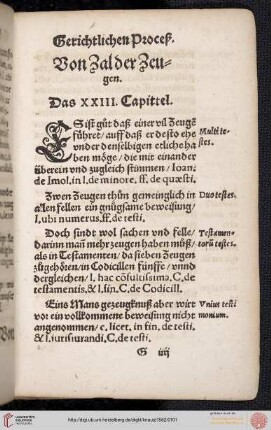 Gerichtlichen Proceß.
Von Zal der Zeu-
gen.
Das XXIII. Capittel.
ES ist gůt daß einer vil Zeugẽ
führet / auff daß er desto ehe
vnder denselbigen etliche ha
ben möge / die mit einander
überein vnd zugleich stimmen / Ioan.
de Imol. in l. de minore. ff. de quæsti.
Multi te-
stes.
Zwen Zeugen thůn gemeinglich in
allen fellen ein gnůgsame beweisung /
l. ubi numerus. ff. de testi.
Duo testes.
Doch sindt wol sachen vnd felle /
darinn man mehr zeugen haben můß /
als in Testamenten / da sieben Zeugen
zůgehören / in Codicillen fünffe / vnnd
dergleichen / l. hac cõsultissima. C. de
testamentis. & l. fin. C. de Codicill.
Testamen-
torũ testes.
Eins Mans gezeugknuß aber wirt
vor ein vollkommene beweisung nicht
angenommen / c. licet. in fin. de testi.
& l. iurisiurandi. C. de testi.
Vnius testi
monium.
G iiij
http://digi.ub.uni-heidelberg.de/diglit/knaust1562/0101